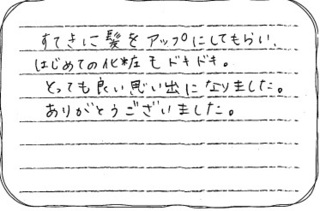 すてきに髪をアップにしてもらい、
はじめての化粧もドキドキ。
とっても良い思い出になりました。
ありがとうございました。